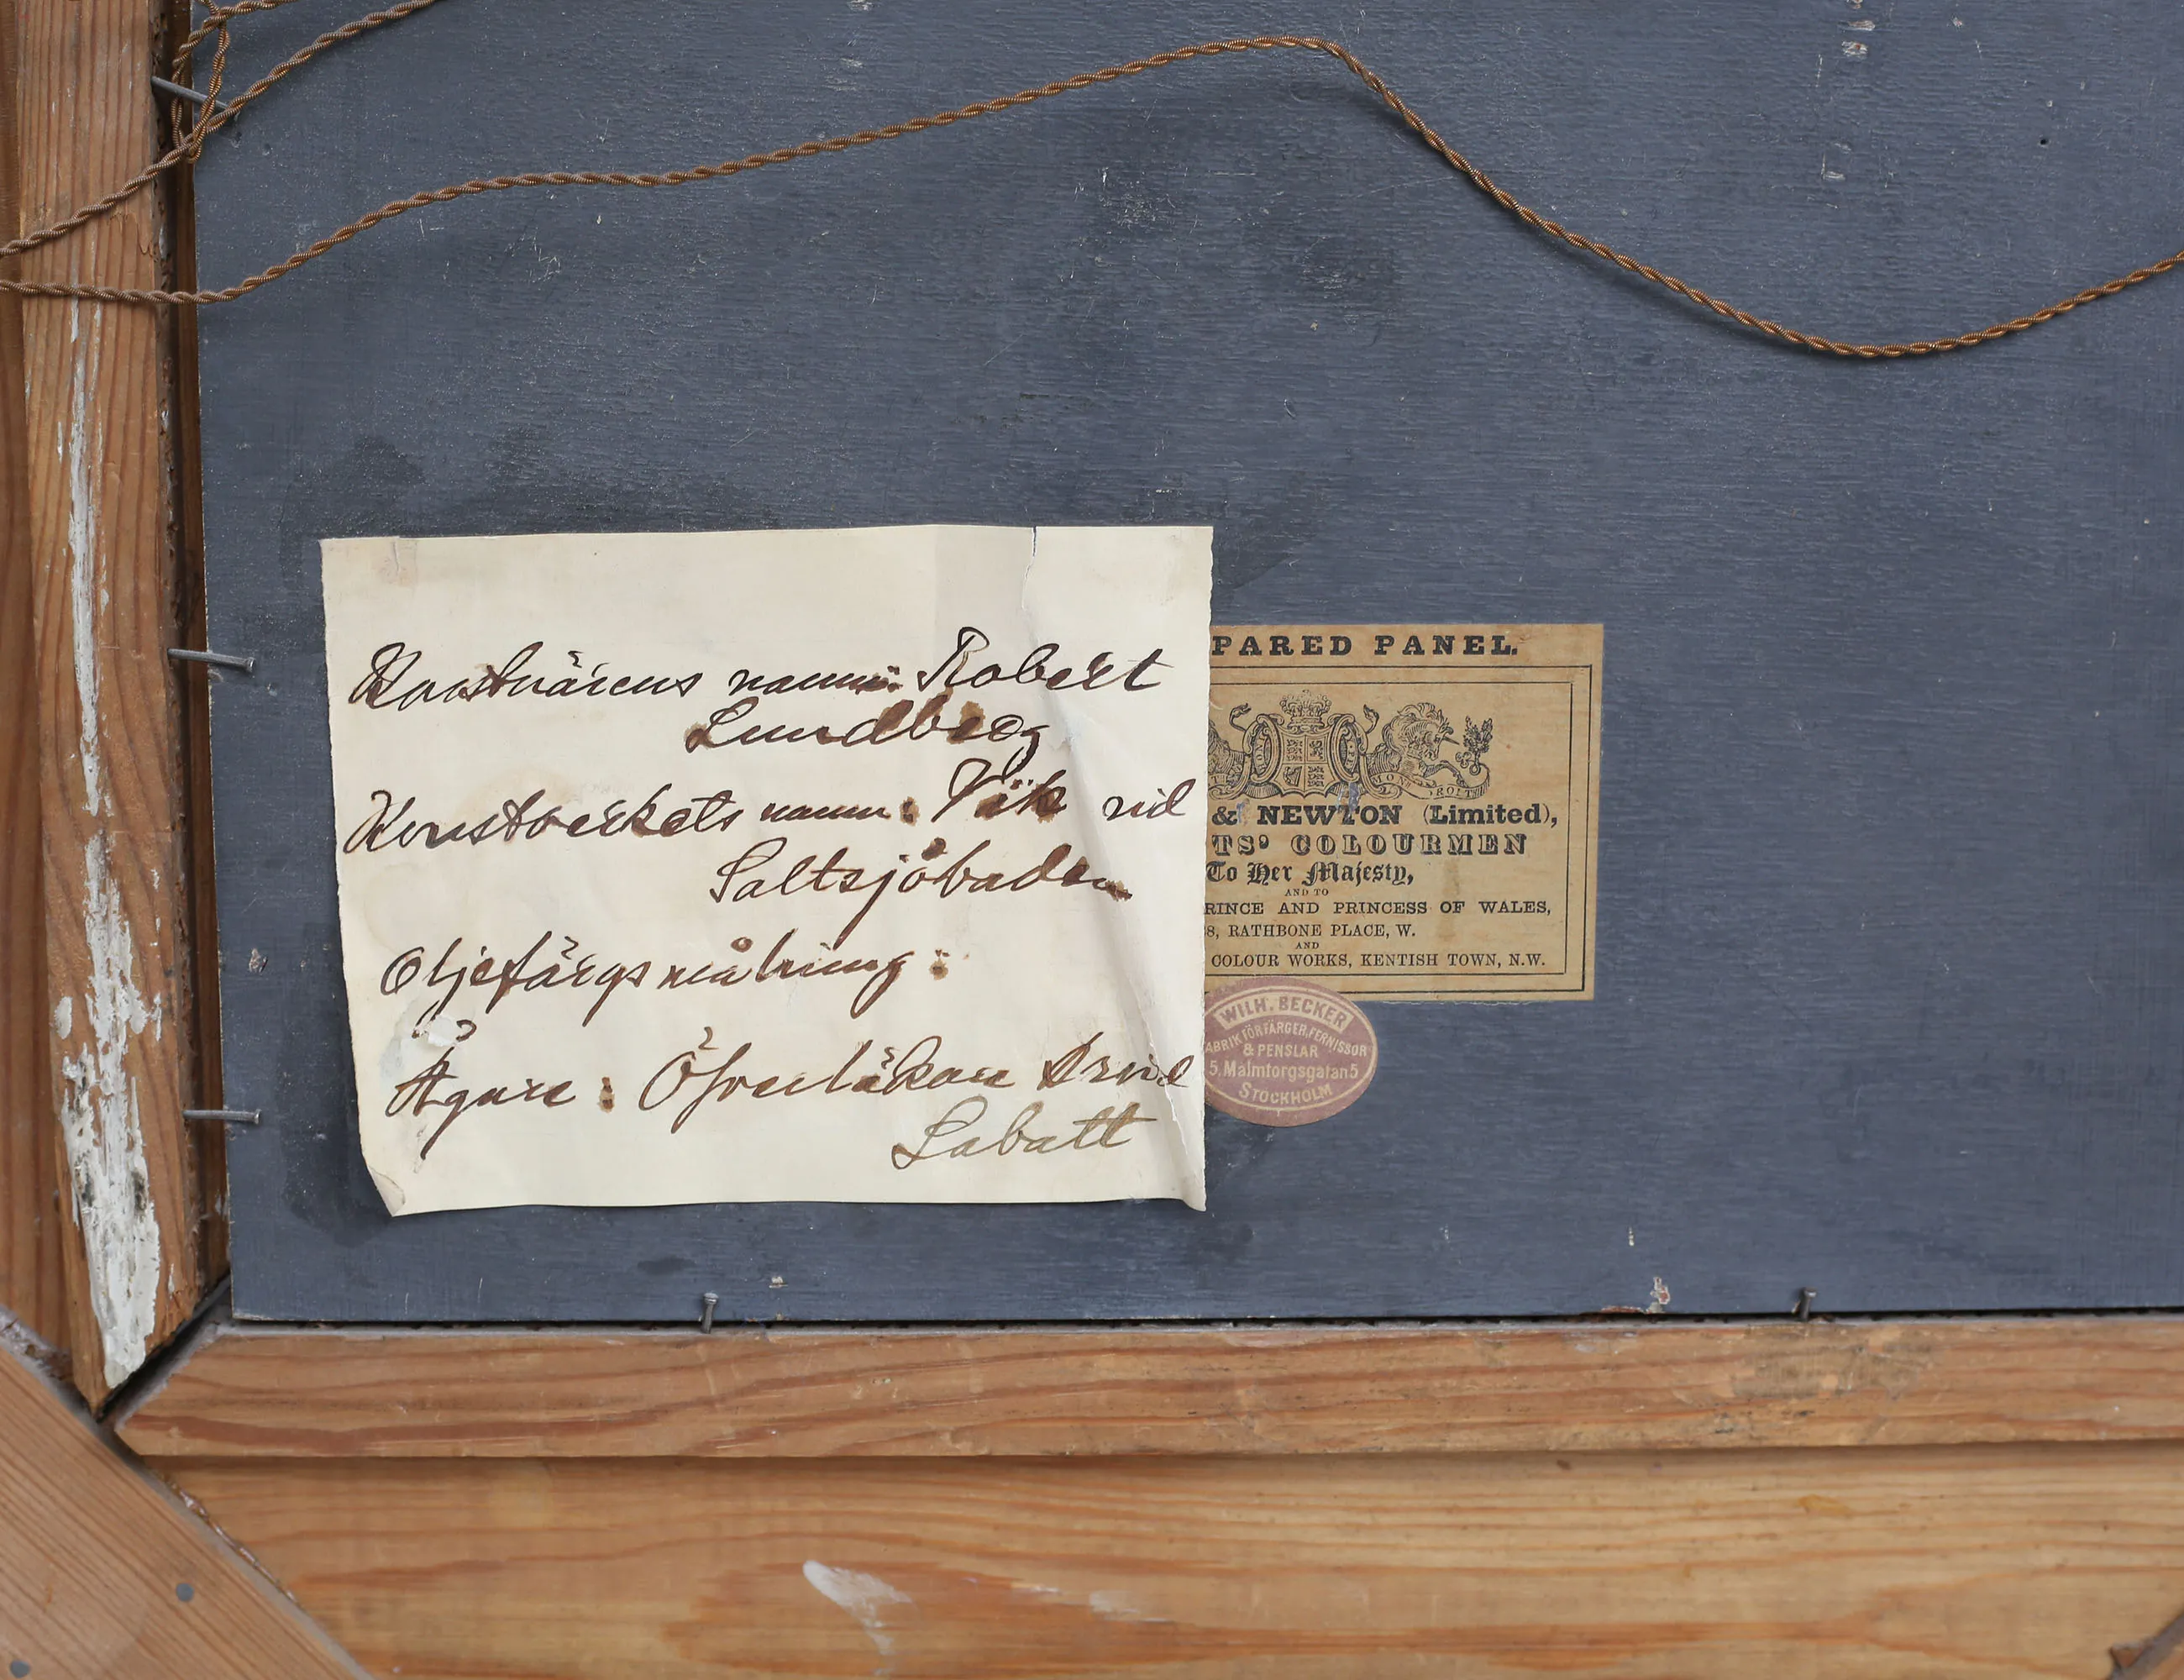 Konstnärens namn: Robert
Lundberg
Konstverkets namn: Vik vid
Saltsjöbaden
Oljefärgsmålning:
Ägare: Öfverläkare Arvid
Labatt
PARED PANEL.
& NEWTON (Limited),
TS' COLOURMEN
To Her Majesty,
AND TO
RINCE AND PRINCESS OF WALES,
8, RATHBONE PLACE, W.
AND
COLOUR WORKS, KENTISH TOWN, N.W.
WILH. BECKER
ABRIK FÖR FÄRGER, FERNISSOR
& PENSLAR
5. Malmtorgsgatan 5
STOCKHOLM